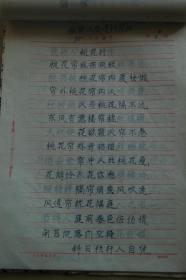 桃花行
桃花帘外东风软
桃花帘内晨妆懒
帘外桃花帘内人
人与桃花隔不远
东风有意揭帘栊
花欲窥人帘不卷
桃花帘外开仍旧
帘中人比桃花瘦
花解怜人花也愁
隔帘消息风吹透
风透帘栊花满庭
庭前春色倍伤情
闲苔院落门空掩
斜日栏杆人自凭